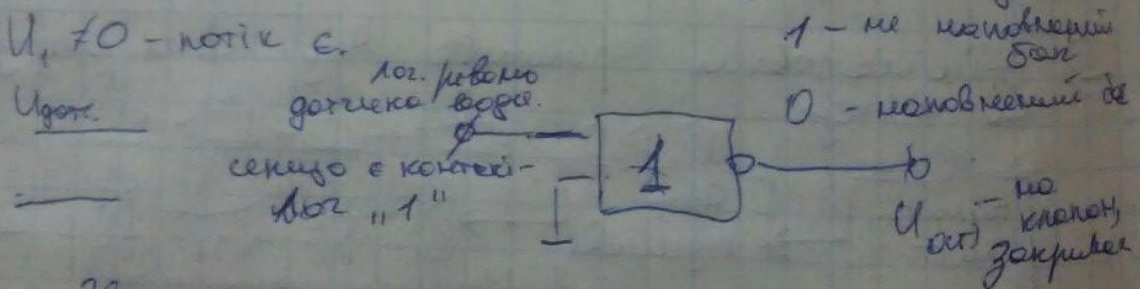 U₁ ≠ 0 - потік є.
1 - не наповнений
бак
лог. рівень
Uдат.
датчика води.
0 - наповнений
є контакт -
лог „1"
1
U
- на
клапан,
закриває